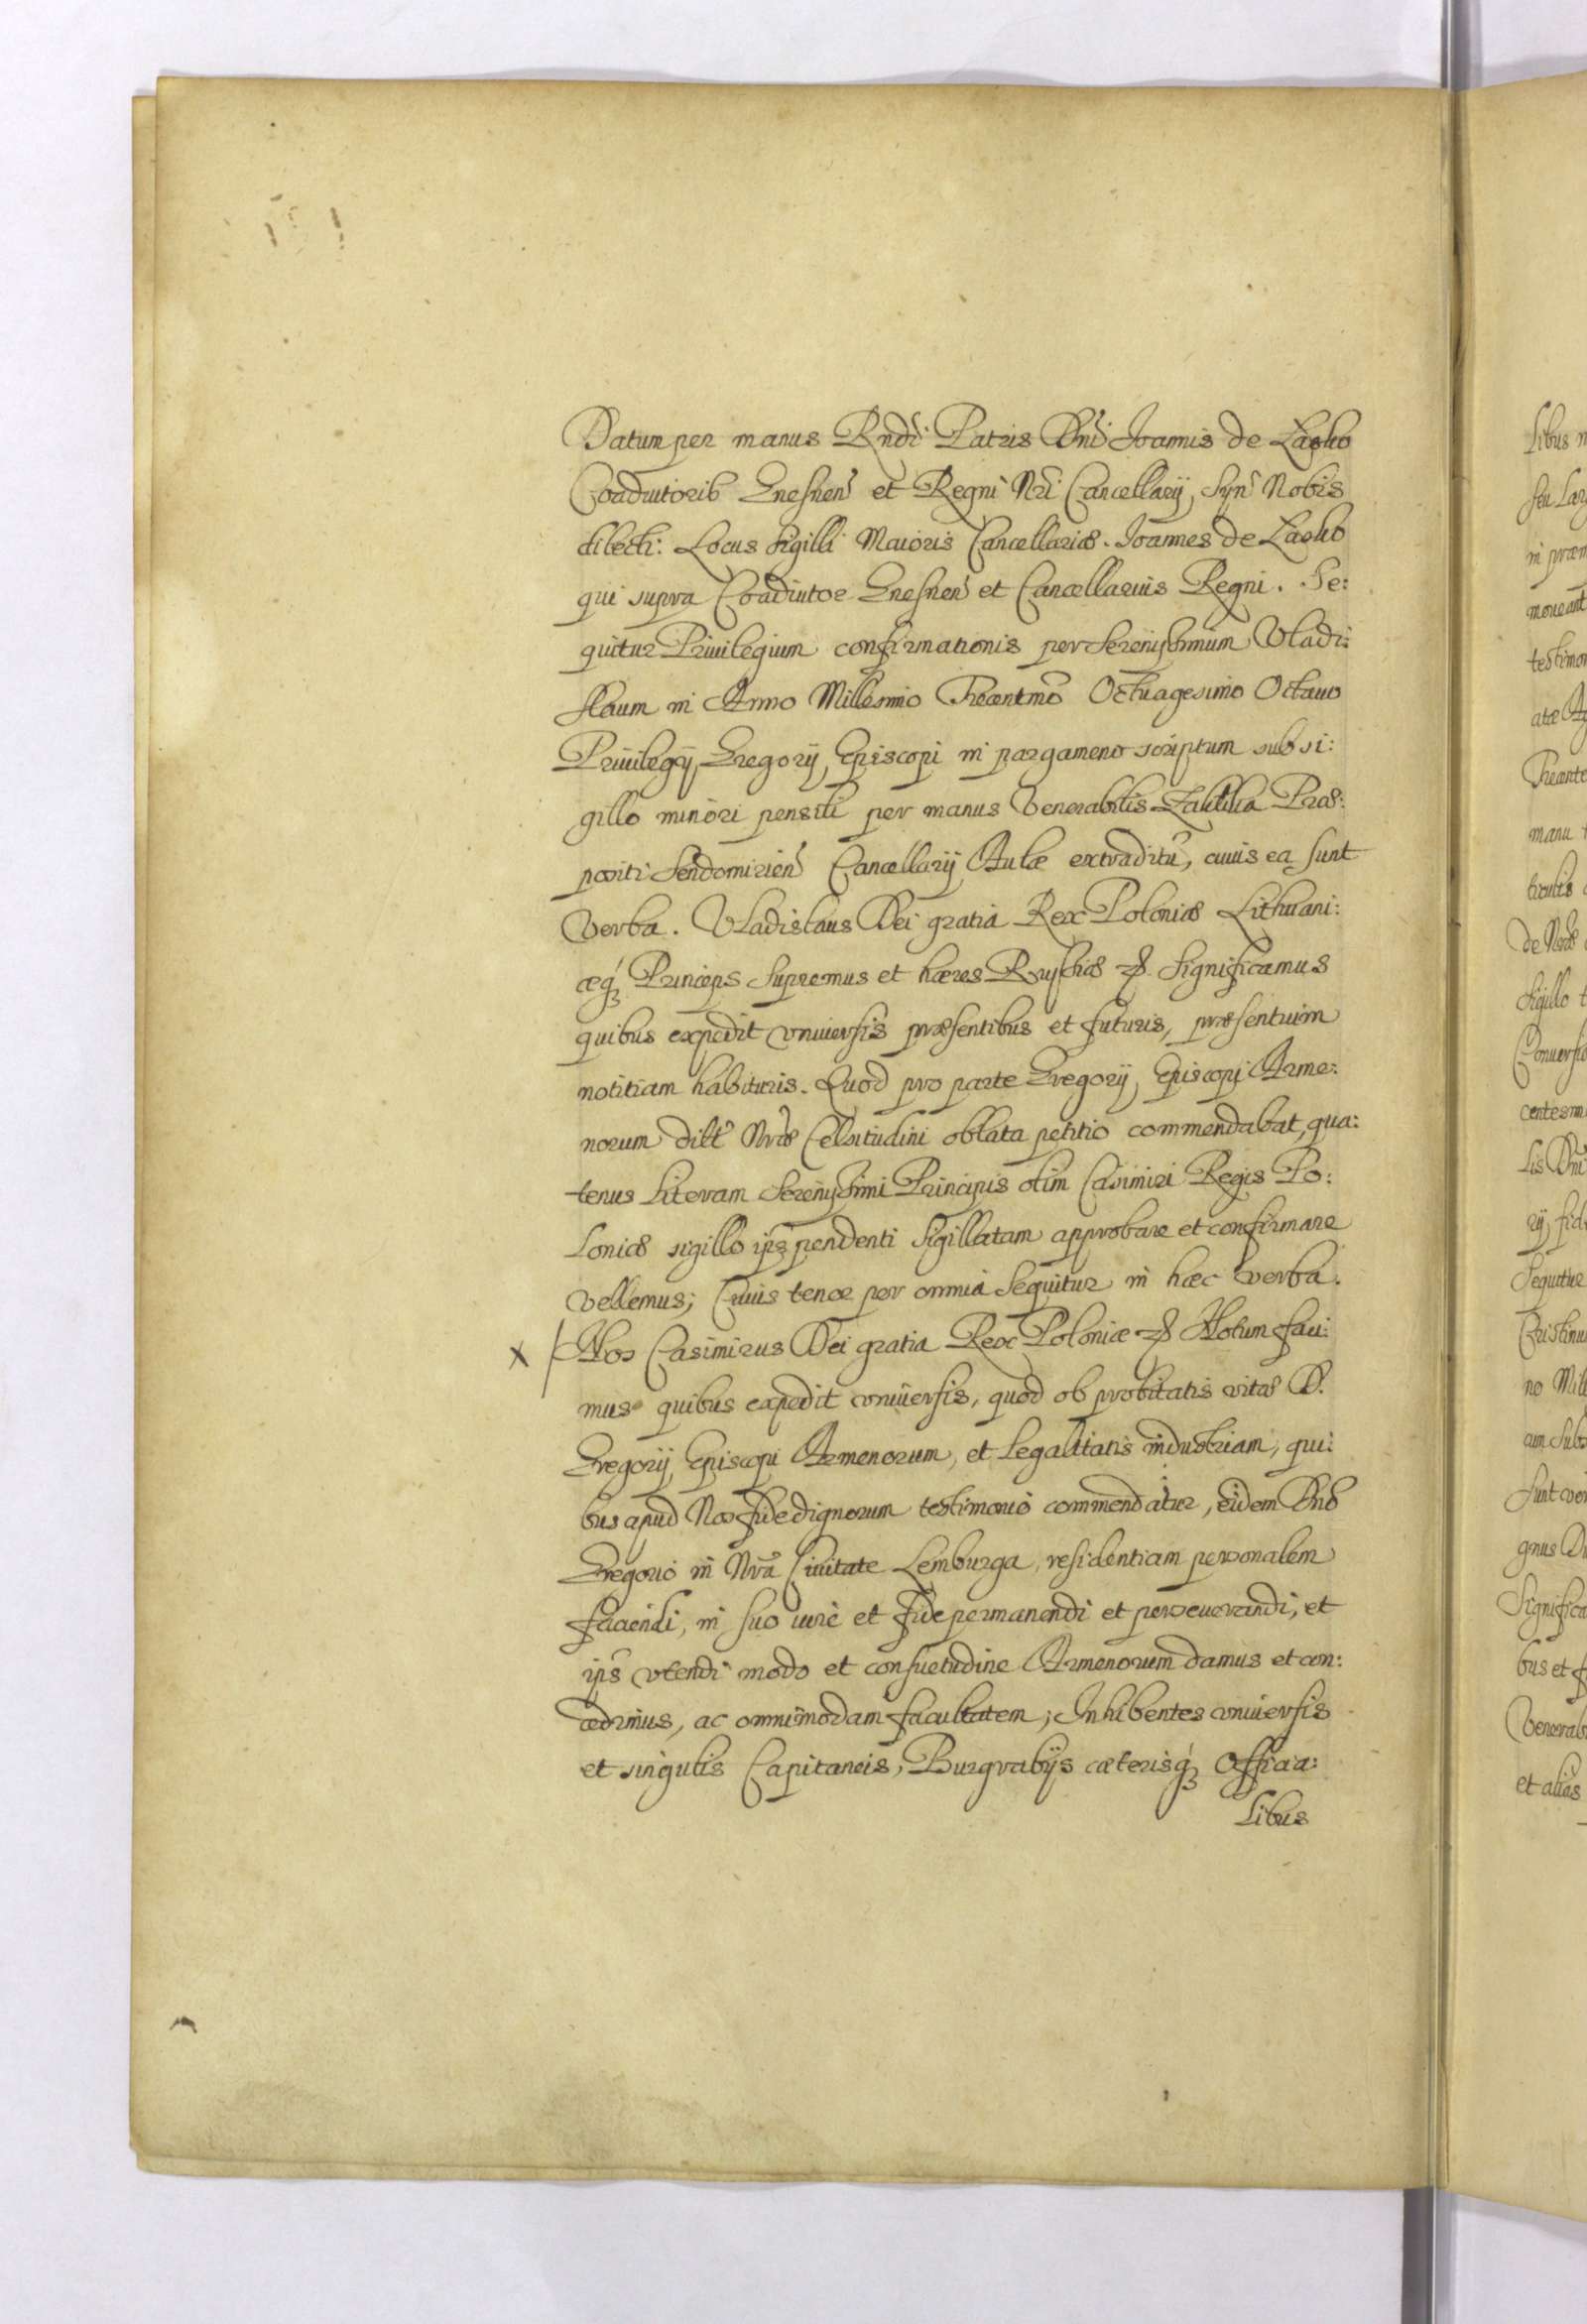 Datum per manus Rndi Patris Dni Ioannis de Lasko
Coadiutoris Gnesnen et Regni Nri Cancellarij, Syn Nobis
dilecti: Locus Sigilli Maioris Cancellariæ. Ioannes de Lasko
qui supra Coadiutor Gnesnen et Cancellarius Regni. Se:
quitur Priuilegium confirmationis per Serenissimum Vladi:
slaum in Anno Millesimo Trecentmo Octuagesimo Octauo
Priuilegij Gregorij Episcopi in pargameno scriptum sub si:
gillo minori pensili per manus Venerabilis Zaklika Præ:
positi Sendomirien Cancellarij Aulæ extraditu, cuius ea sunt
verba. Vladislaus Dei gratia Rex Poloniæ Lithuani:
æq Princeps Supremus et hæres Russiæ &. Significamus
quibus expedit vniuersis præsentibus et futuris, præsentium
notitiam habituris. Quod pro parte Gregorij Episcopi Arme:
norum dilt Nræ Celsitudini oblata petitio commendabat, qua:
tenus Literam Serenissimi Principis olim Casimiri Regis Po:
loniæ sigillo ips pendenti Sigillatam approbare et confirmare
vellemus; Cuius tenor per omnia Sequitur in hæc verba.
x / Nos Casimirus Dei gratia Rex Poloniæ & Notum faci:
mus quibus expedit vniuersis, quod ob probitatis vitæ D.
Gregorij Episcopi Armenorum, et legalitatis industriam, qui:
bus apud Nos fide dignorum testimonio commendatur, eidem Dno
Gregorio in Nra Ciuitate Lemburga, residentiam personalem
faciendi, in suo iure et fide permanendi et perseuerandi, et
ips vtendi modo et consuetudine Armenorum damus et con:
cedimus, ac omnimodam facultatem; Inhibentes vniuersis
et singulis Capitaneis, Burgrabijs cæterisq Officia:
libus